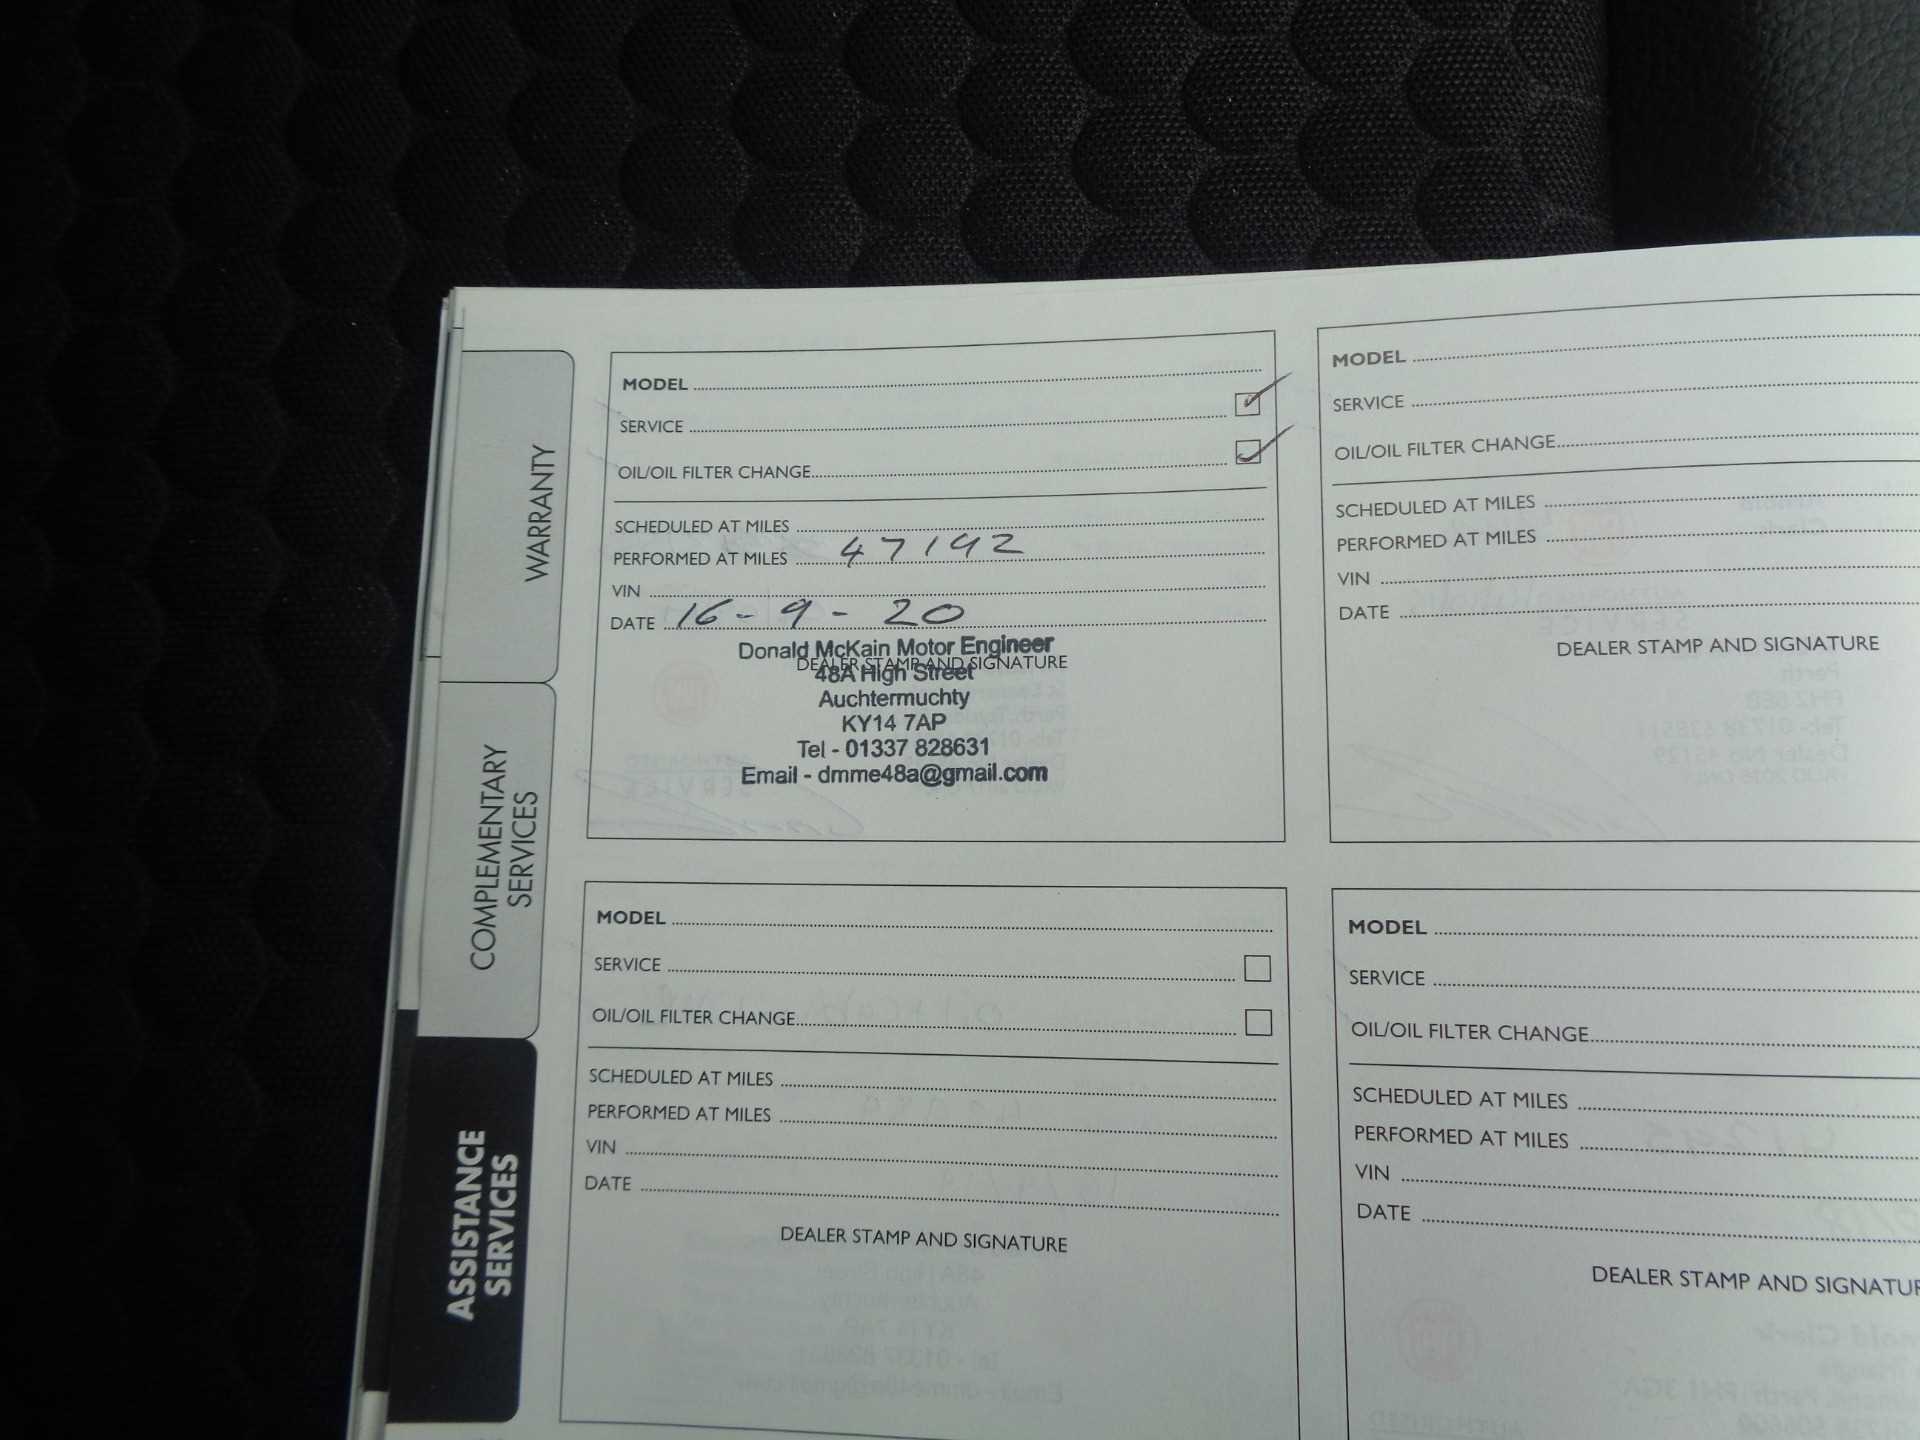 WARRANTY
COMPLEMENTARY
SERVICES
ASSISTANCE
SERVICES
MODEL
SERVICE
OIL/OIL FILTER CHANGE
SCHEDULED AT MILES
PERFORMED AT MILES 47192
VIN
DATE 16-9-20
Donald McKain Motor Engineer
DEALER STAMP AND SIGNATURE
48A High Street
Auchtermuchty
KY14 7AP
Tel - 01337 828631
Email - dmme48a@gmail.com
MODEL
SERVICE
OIL/OIL FILTER CHANGE
SCHEDULED AT MILES
PERFORMED AT MILES
VIN
DATE
DEALER STAMP AND SIGNATURE
MODEL
SERVICE
OIL/OIL FILTER CHANGE
SCHEDULED AT MILES
PERFORMED AT MILES
VIN
DATE
DEALER STAMP AND SIGNATURE
MODEL
SERVICE
OIL/OIL FILTER CHANGE
SCHEDULED AT MILES
PERFORMED AT MILES
VIN
DATE
DEALER STAMP AND SIGNATUR